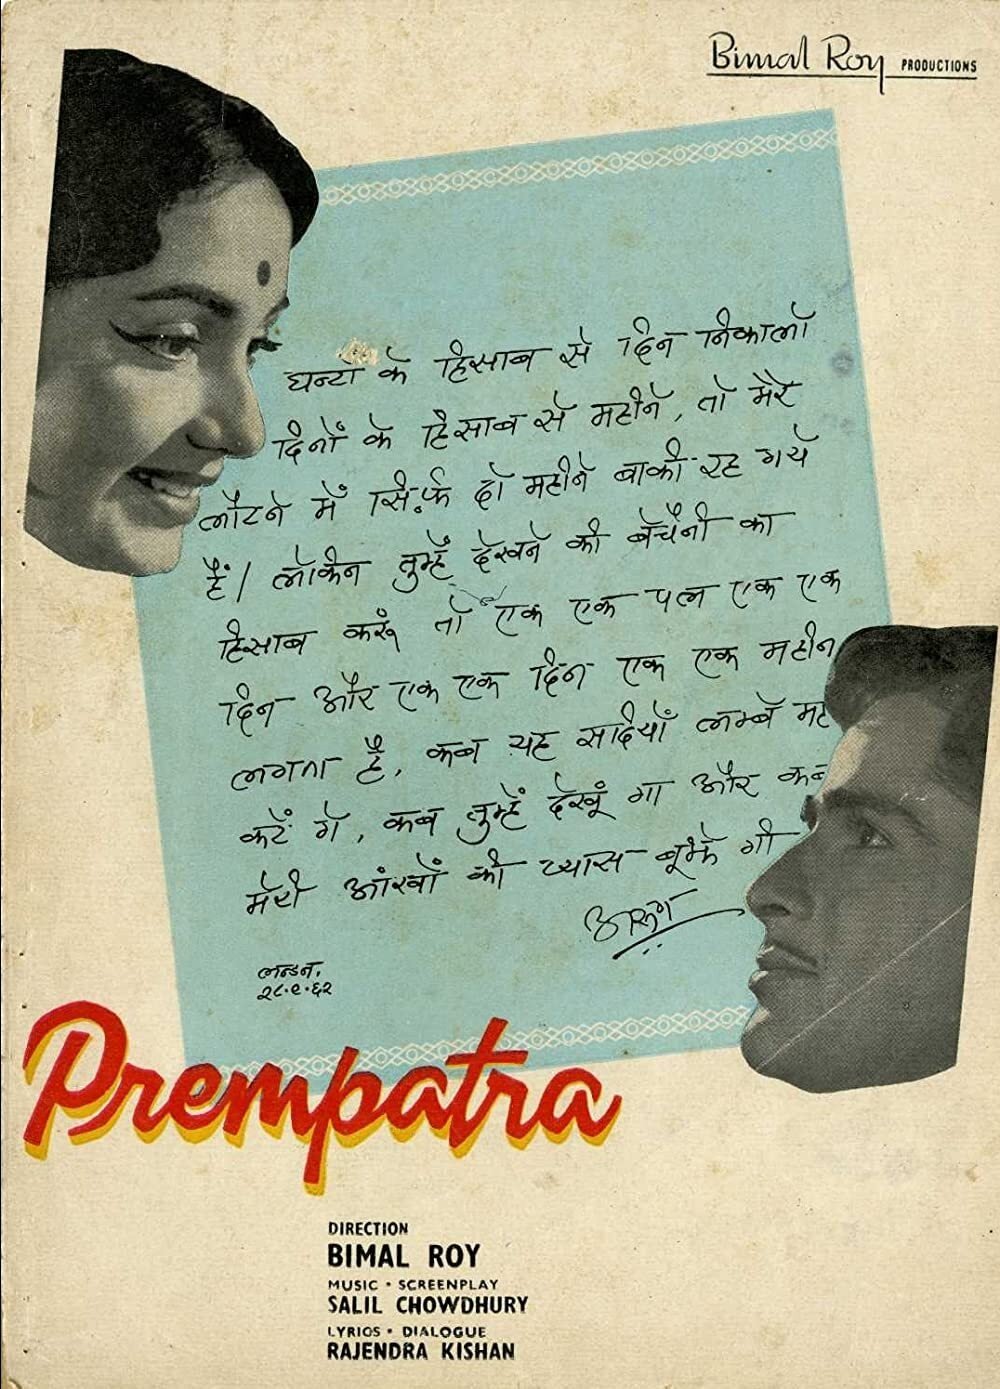 Bimal Roy PRODUCTIONS
घन्टों के हिसाब से दिन निकालो
दिनों के हिसाब से महीने, तो मेरे
लौटने में सिर्फ़ दो महीने बाकी रह गये
हैं। लेकिन तुम्हें देखने की बेचैनी का
हिसाब करूं तो एक एक पल एक एक
दिन और एक एक दिन एक एक महीन
लगता है, कब यह सदियों लम्बे मह
कटें गे, कब तुम्हें देखूं गा और कब
मेरी आंखों की प्यास बूझे गी
अरुण
लन्डन.
२८.९.६२
Prempatra
DIRECTION
BIMAL ROY
MUSIC • SCREENPLAY
SALIL CHOWDHURY
LYRICS • DIALOGUE
RAJENDRA KISHAN